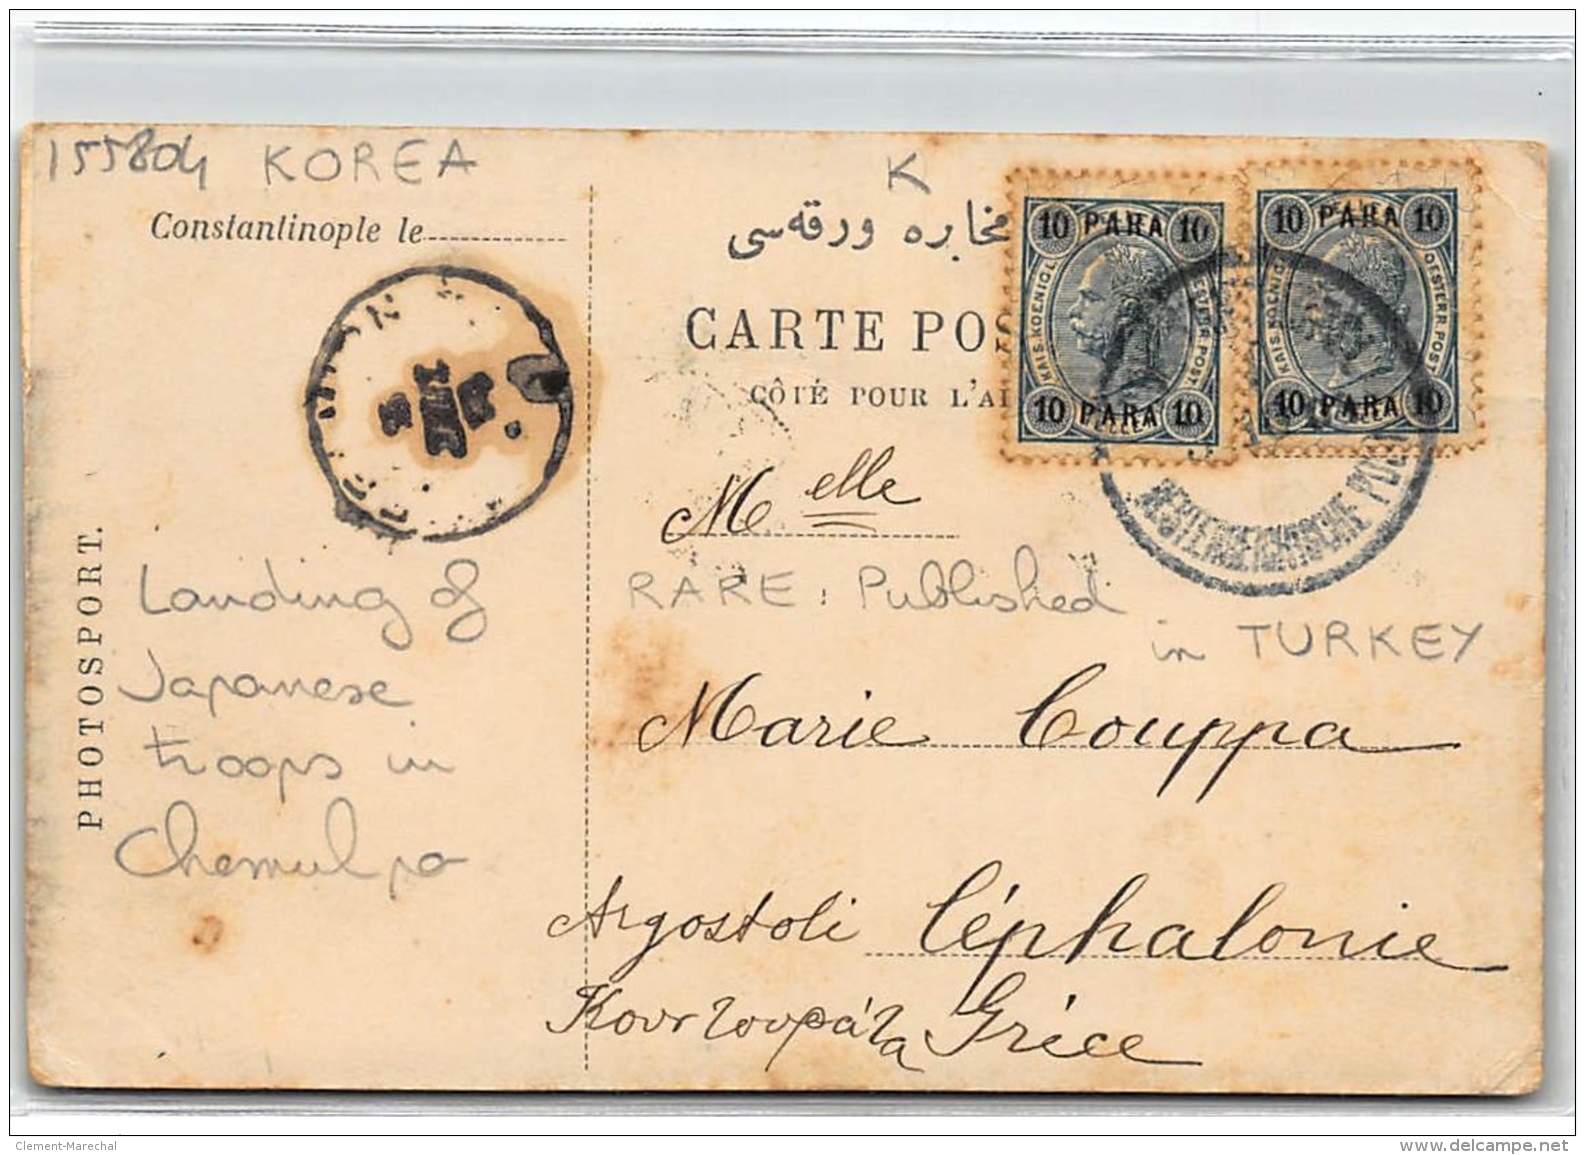 155804 KOREA
K
Constantinople le
مخابره و رقه سی
CARTE POS
CÔTÉ POUR L'AD
10 PARA 10
KAIS. KOENIGL. OESTERR. POST.
10 PARA 10
HELLER
10 PARA 10
KAIS. KOENIGL. OESTERR. POST.
10 PARA 10
HELLER
OESTERREICHISCHE POST
PHOTOSPORT.
Landing of
Japanese
troops in
Chemulpo
Melle
RARE : Published
in TURKEY
Marie Couppa
Argostoli Céphalonie
Grèce
Clement-Marechal
www.delcampe.net